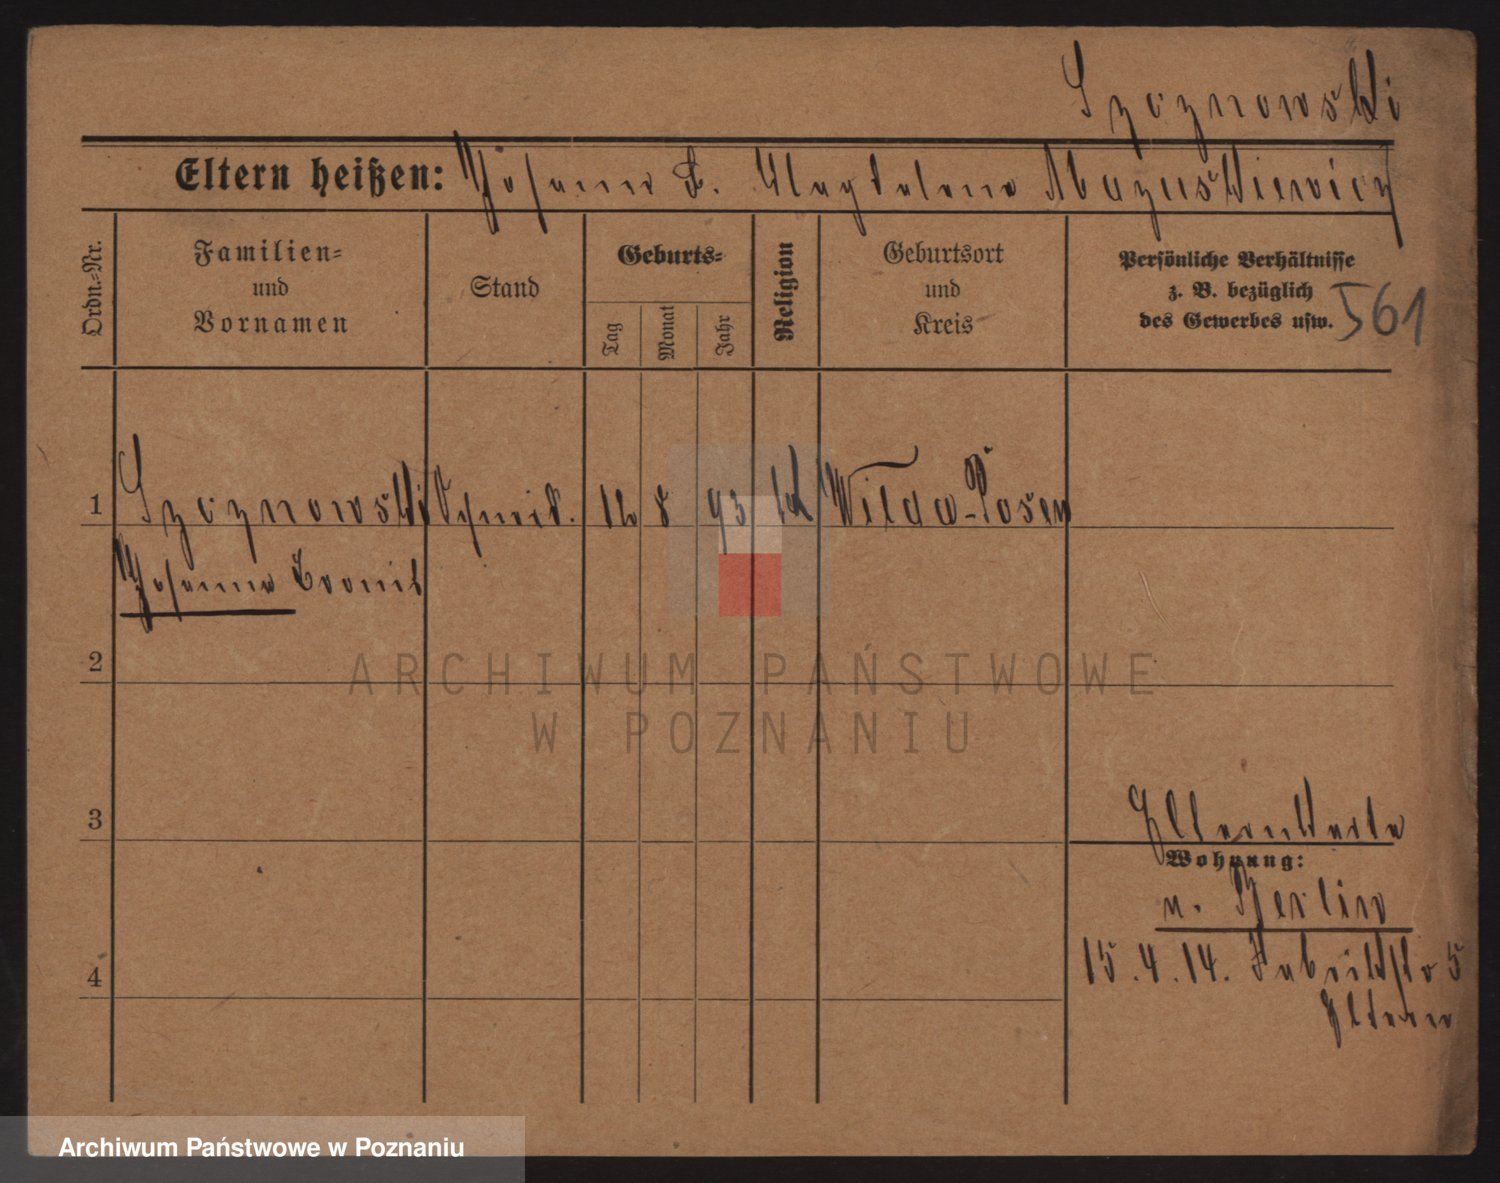 Szoznowski
Eltern heißen: Johann u. Magdalena Mazuskiewicz
Ordn.-Nr.
Familien=
und
Vornamen
Stand
Geburts=
Tag
Monat
Jahr
Religion
Geburtsort
und
Kreis
Persönliche Verhältnisse
z. B. bezüglich
des Gewerbes usw.
561
1
Szoznowski 12 8 93 kt Wilda-Posen
Johann
2
3
Elternkarte
Wohnung:
n. Berlin
4
15.4.14. Fabrikstr 5
Eltern
ARCHIWUM PAŃSTWOWE
W POZNANIU
Archiwum Państwowe w Poznaniu